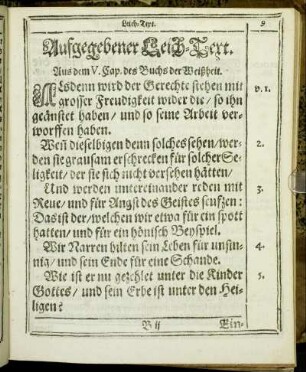 Leich-Text. 9
Aufgegebener Leich-Text.
Aus dem V. Cap. des Buchs der Weißheit.
ALsdenn wird der Gerechte stehen mit v. 1.
grosser Freudigkeit wider die / so ihn
geängstet haben / und so seine Arbeit ver-
worffen haben.
Weñ dieselbigen denn solches sehen / wer- 2.
den sie grausam erschrecken für solcher Se-
ligkeit / der sie sich nicht versehen hätten /
Und werden untereinander reden mit 3.
Reue / und für Angst des Geistes seufzen:
Das ist der / welchen wir etwa für ein spott
hatten / und für ein hönisch Beyspiel.
Wir Narren hilten sein Leben für unsin- 4.
nig / und sein Ende für eine Schande.
Wie ist er nu gezehlet unter die Kinder 5.
Gottes / und sein Erbe ist unter den Hei-
ligen?
B ij Ein-